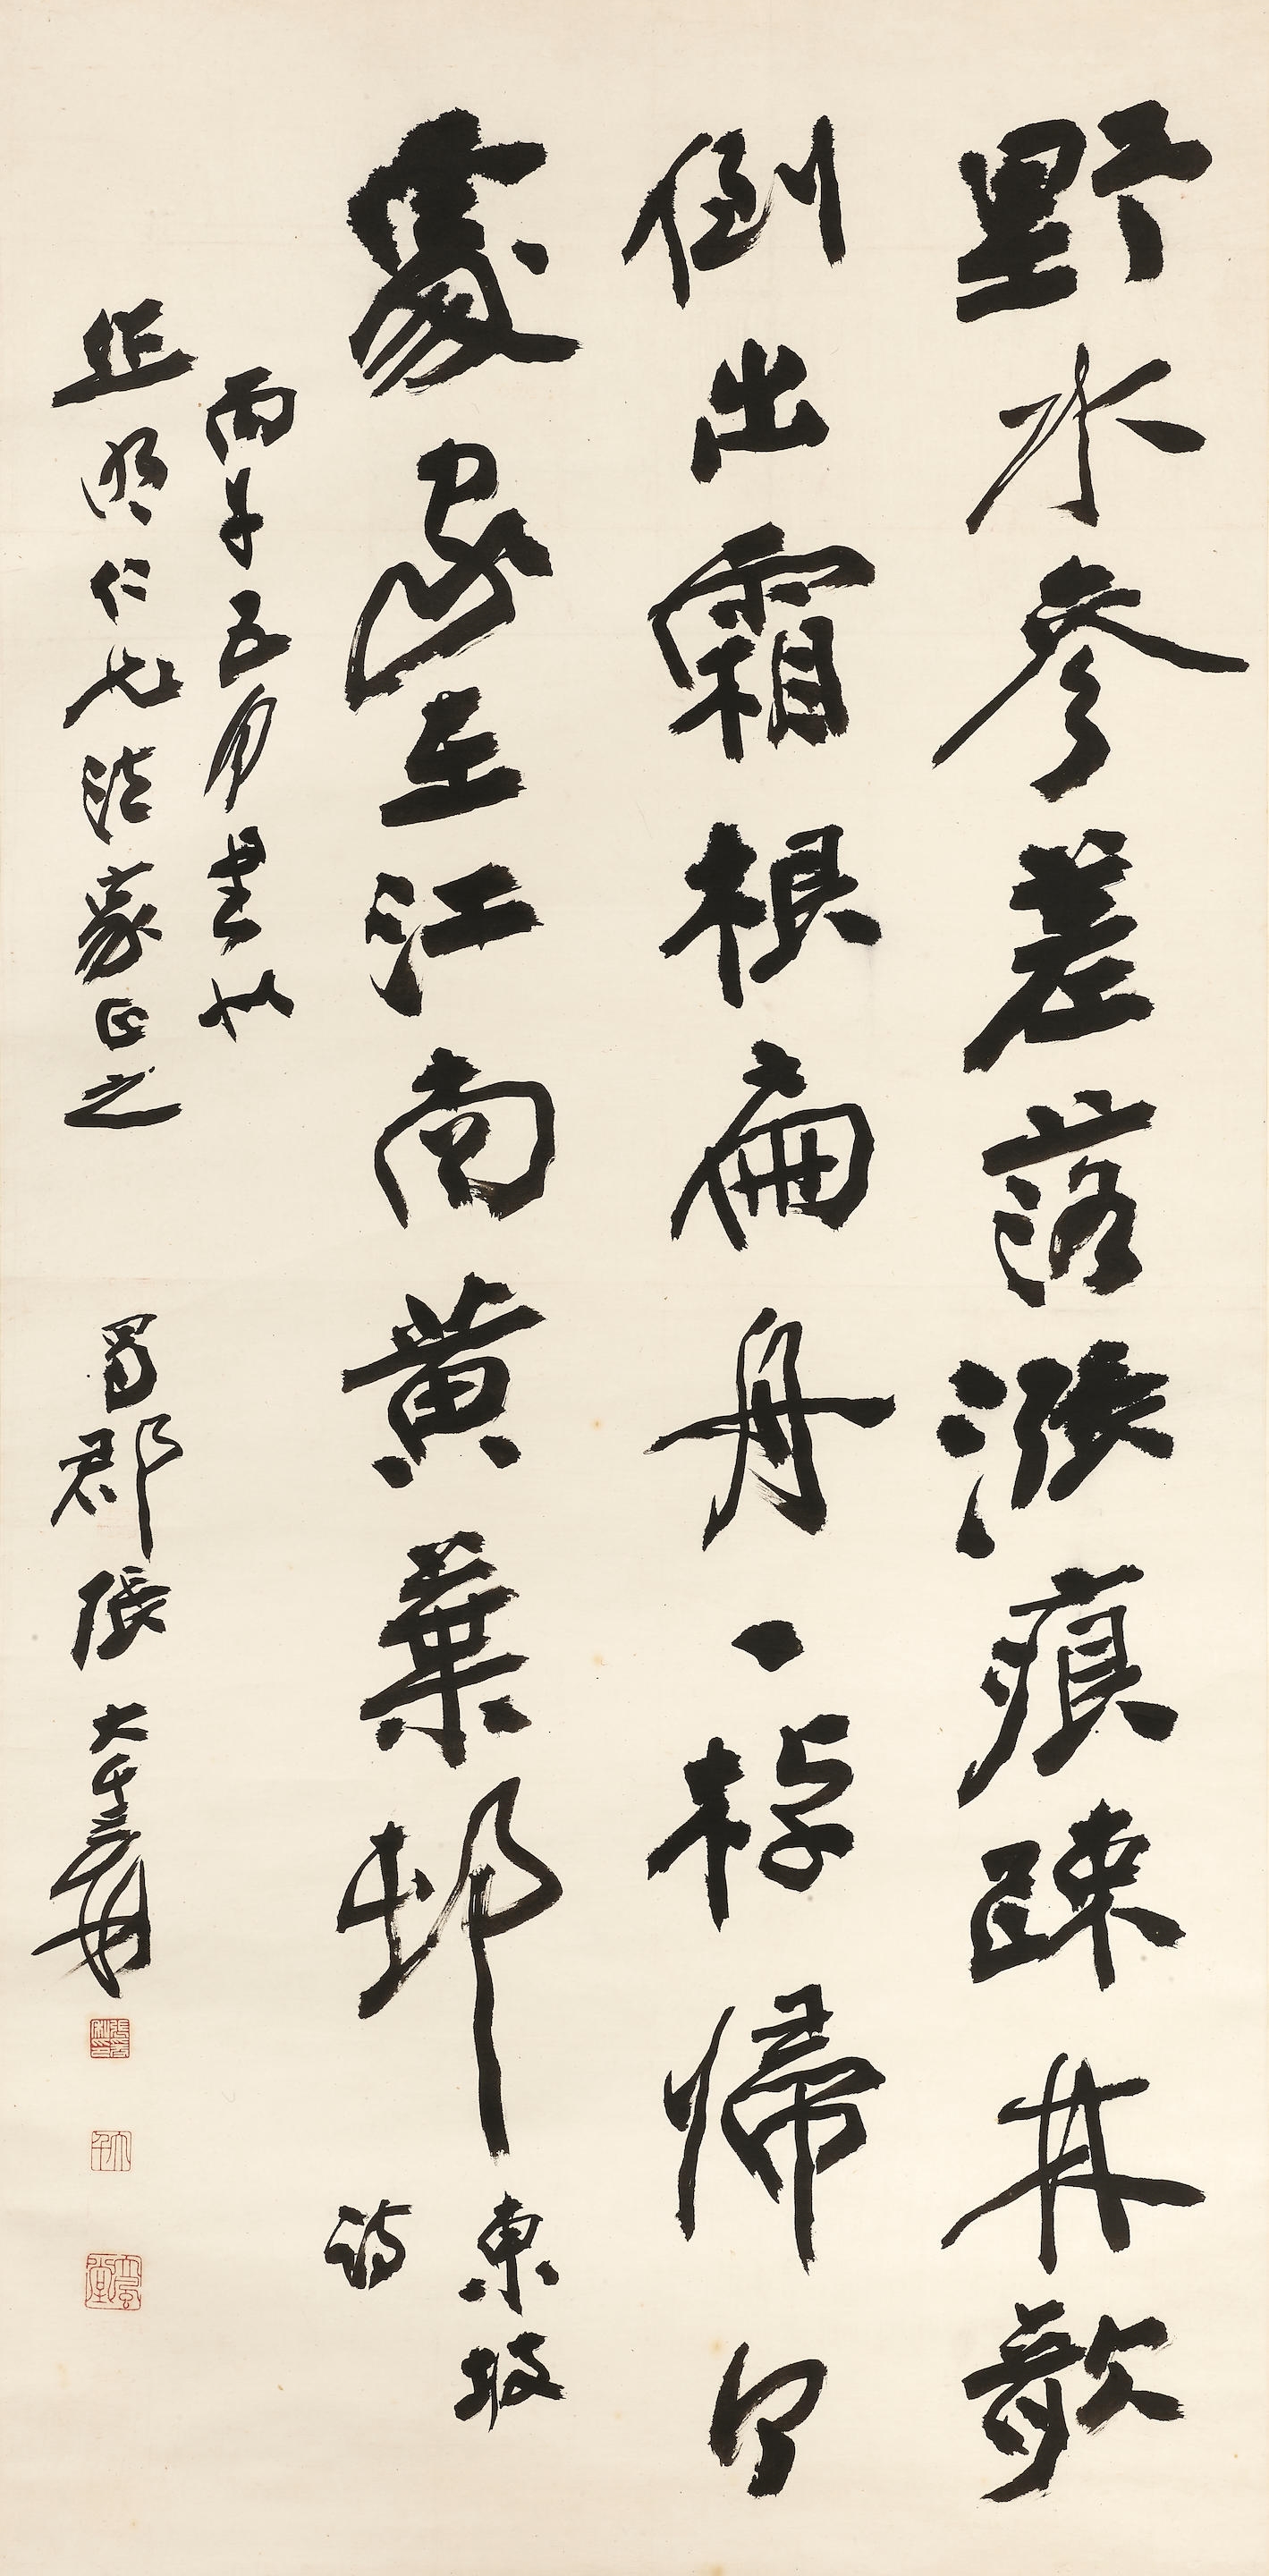 野水參差落漲痕疎林欹
倒出霜根扁舟一棹歸何
處家在江南黃葉邨
東坡
詩
丙子五月書似
仁兄法家正之
蜀郡張大千爰